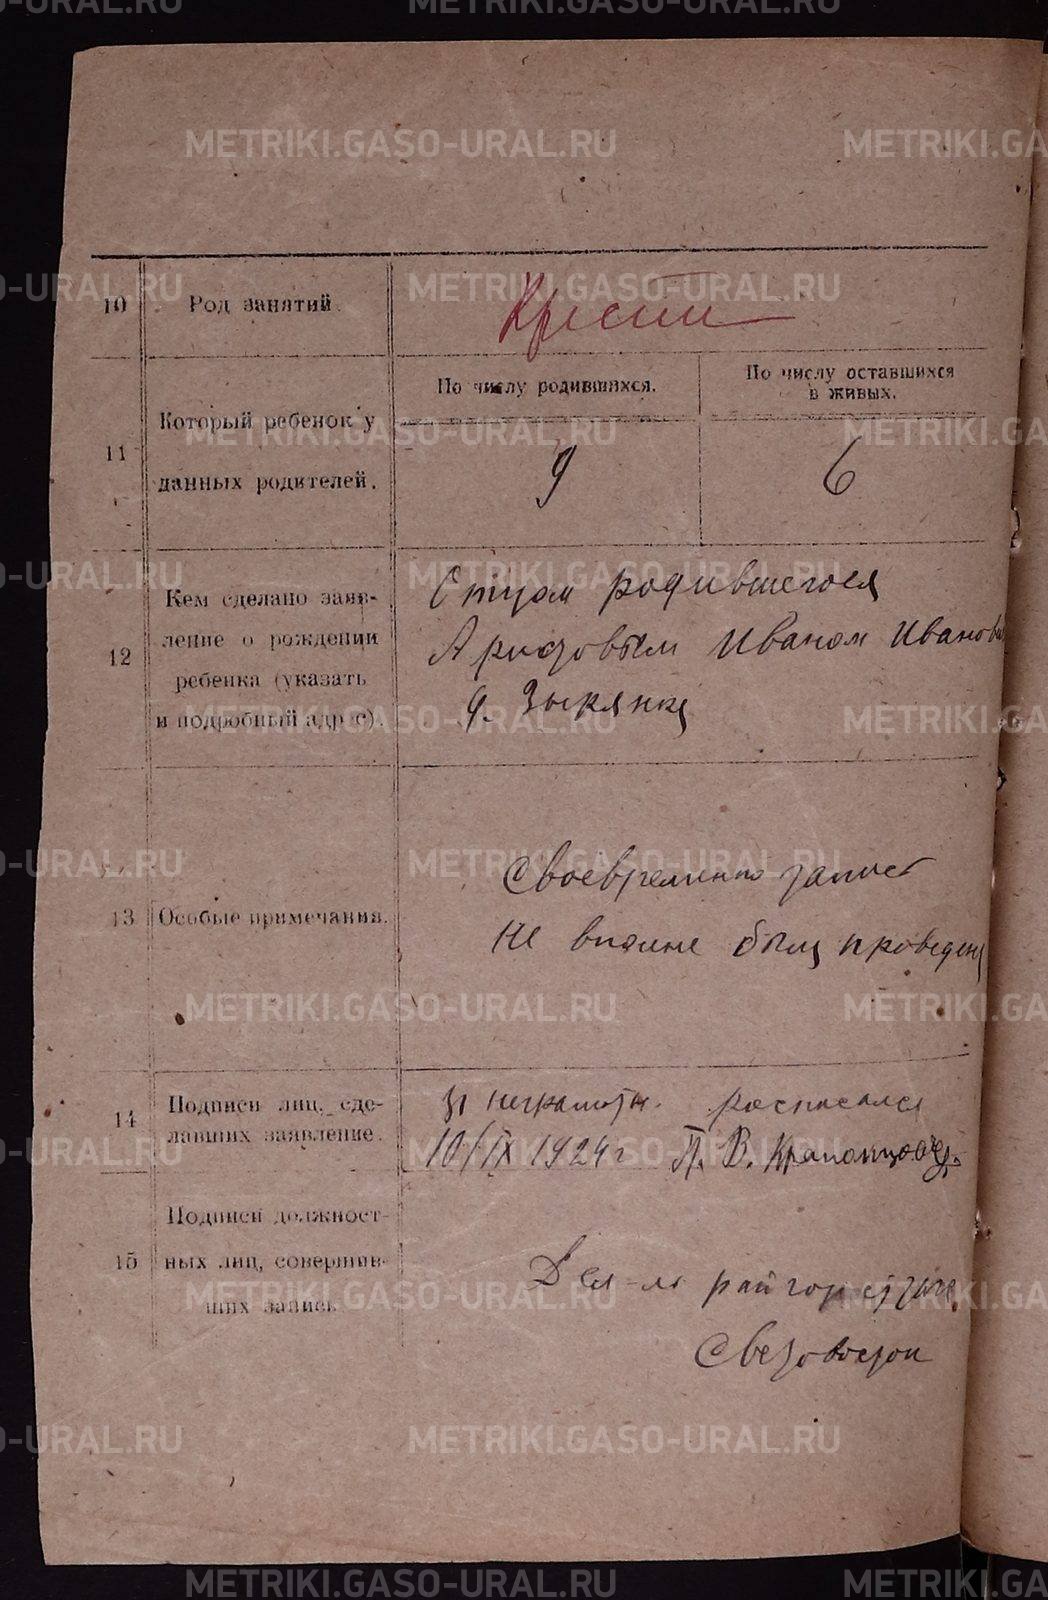 10 Род занятий. Крестн
11 Который ребенок у данных родителей.
По числу родившихся. 9
По числу оставшихся в живых. 6
12 Кем сделано заяв-
ление о рождении
ребенка (указать
и подробный адрес).
Отцом родившегося
Иваном Иванов
д. Зырянка
13 Особые примечания.
Своевременно запись
не вполне была проведена
14 Подписи лиц, сде-
лавших заявление.
За неграмотн. расписался
10/IX 1924 г П. В.
15 Подписи должност-
ных лиц, совершив-
ших запись.
METRIKI.GASO-URAL.RU